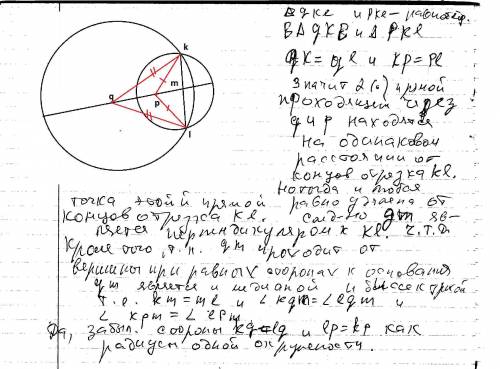 k
q
m
p
l
∆ qke и pke – равнобедр.
В ∆ qke и ∆ pke
qk = qe и kp = pe
значит 2 (.) прямой
проходящей через
q и p находятся
на одинаковом
расстоянии от
концов отрезка ke.
Но тогда и любая
точка этой прямой равно удалена от
концов отрезка ke. следно qm яв-
ляется перпендикуляром к ke. ч.т.д
Кроме того, т.к. qm проходит от
вершины при равных сторонах к основания
qm является и медианой и биссектрисой
т.е. km = me и ∠ kqm = ∠ eqm и
∠ kpm = ∠ epm
Да, забыл. стороны kq = eq и ep = kp как
радиусы одной окружности.